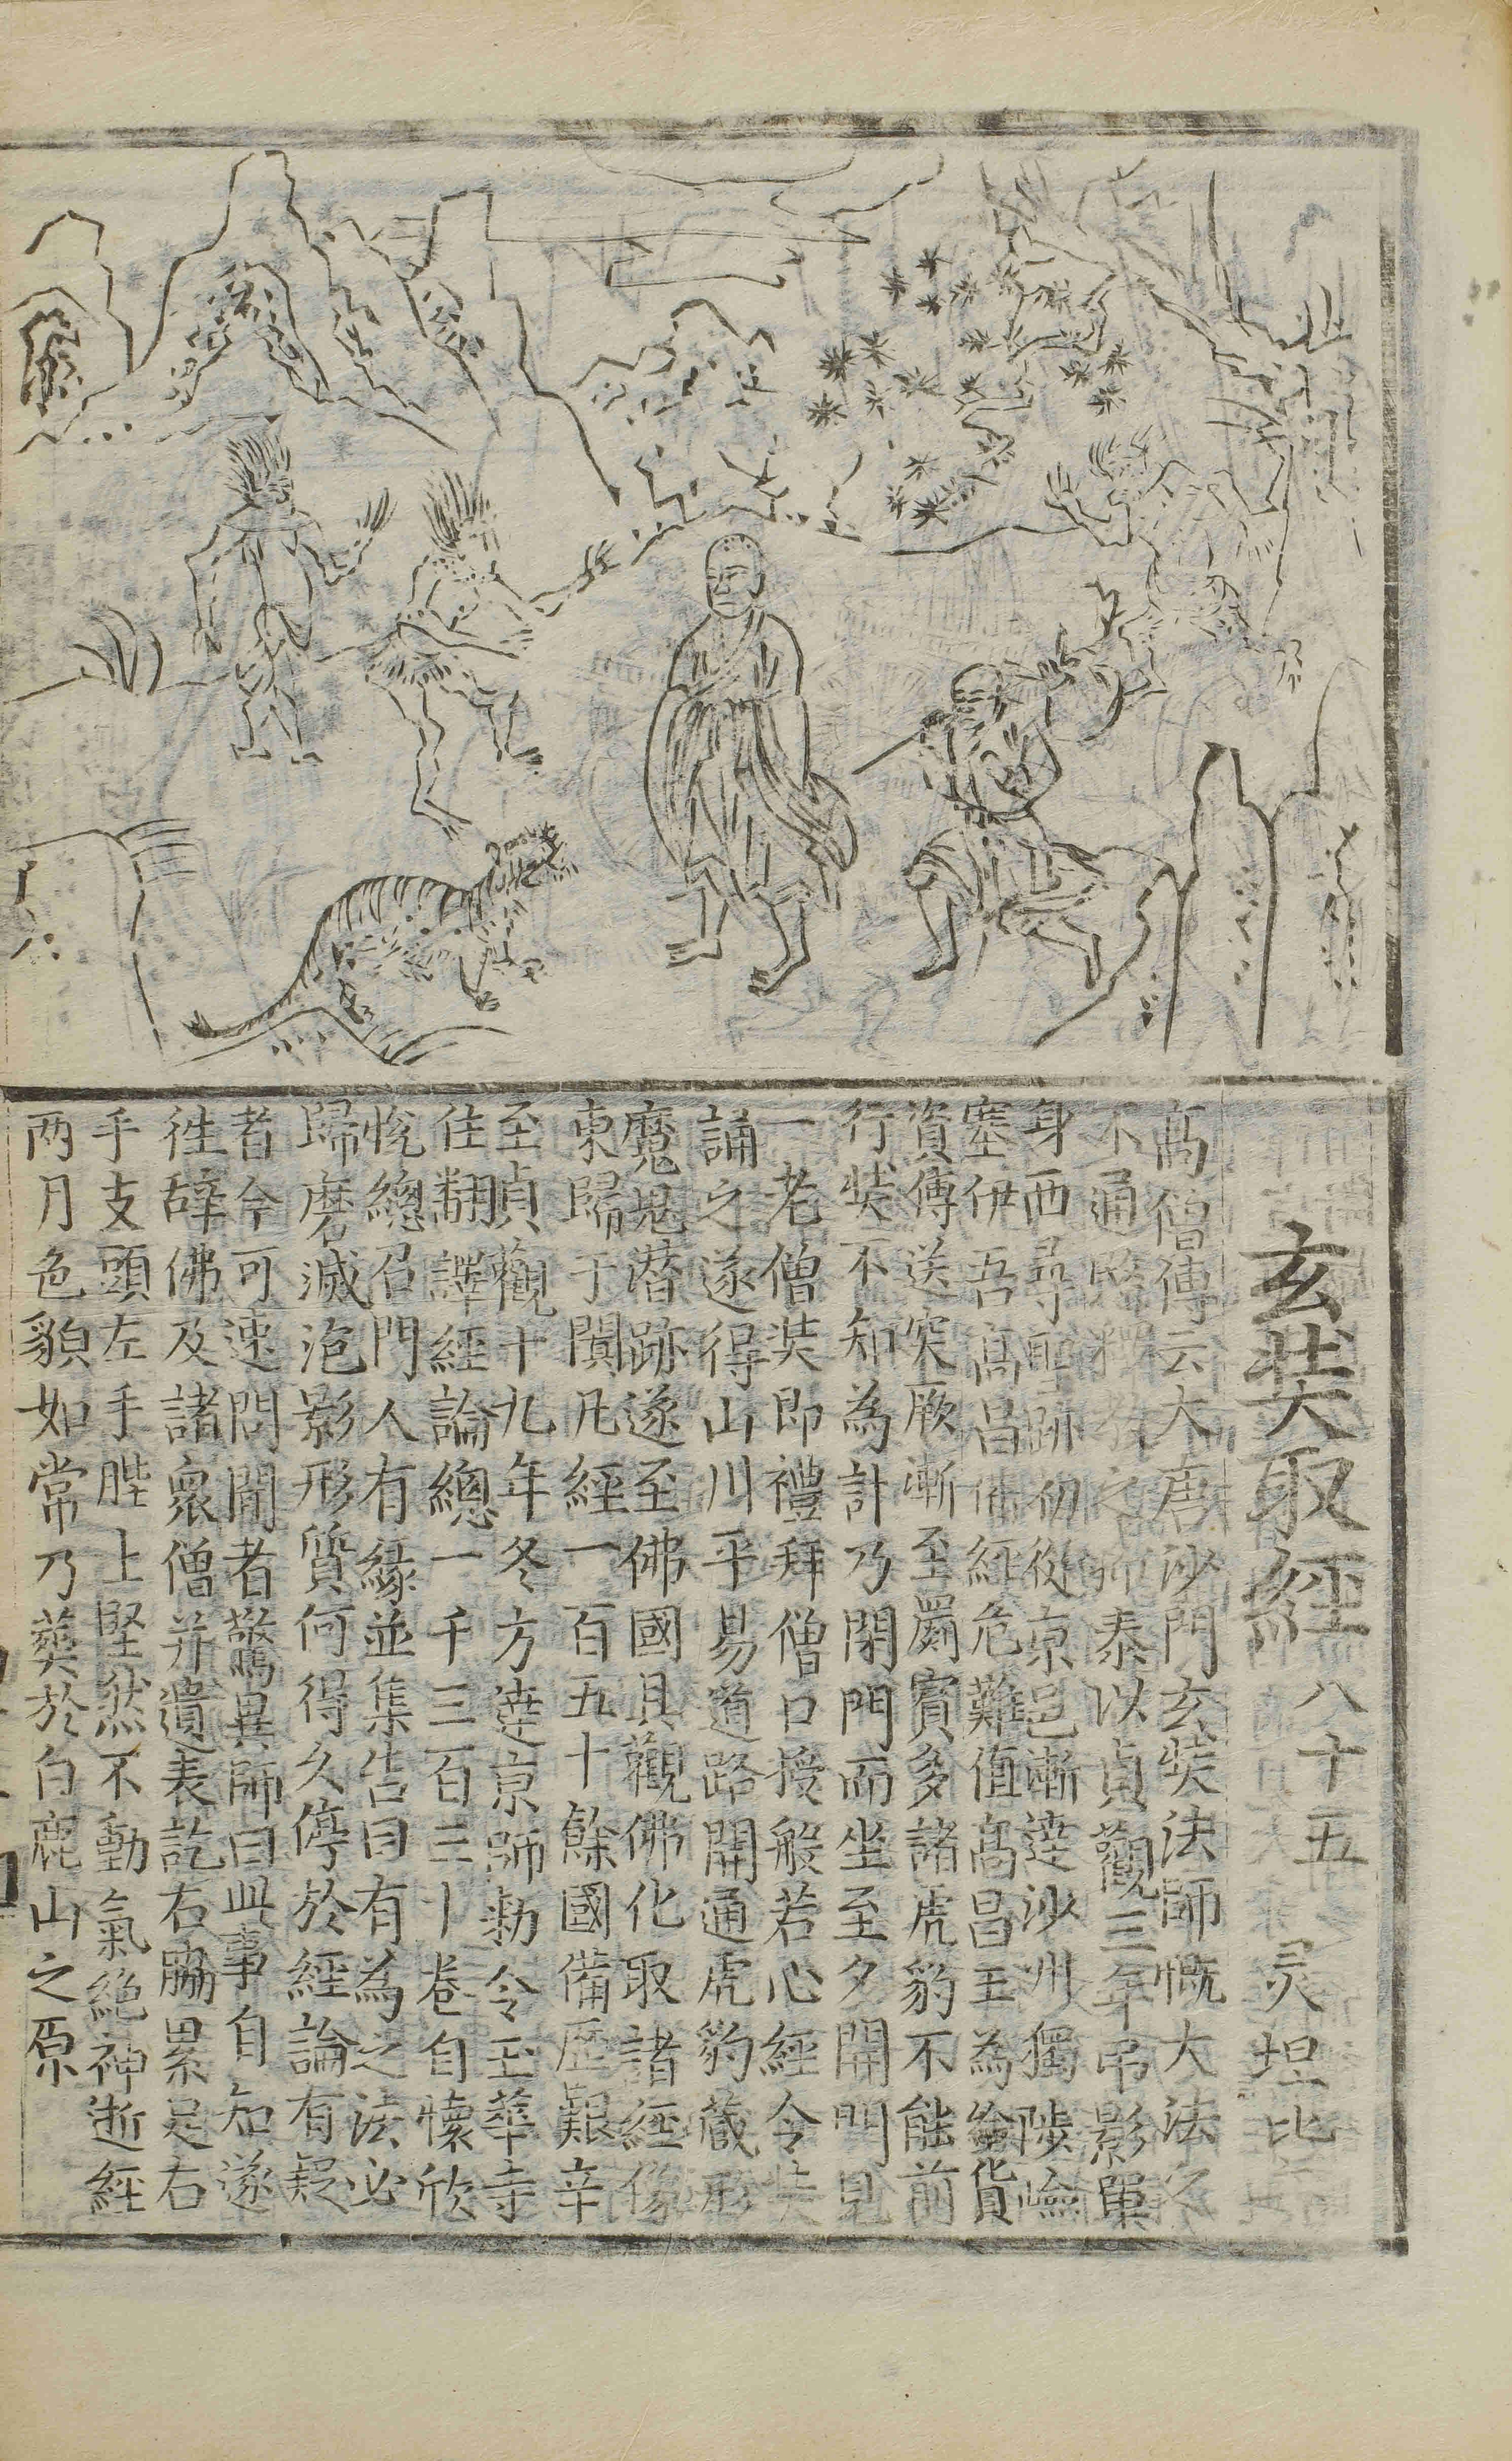 玄奘取經 八十五 灵坦比
高僧傳云大唐沙門玄奘法師慨大法
不通 釋教之 泰以貞觀三年弔影單
身西尋聖跡初從京邑漸達沙州獨陟嶮
塞伊吾高昌俻經危難值高昌王為給貨
資傳送突厥漸至罽賓多諸虎豹不能前
行奘不知為計乃閉門而坐至夕開門見
一老僧奘即禮拜僧口授般若心經令奘
誦之遂得山川平易道路開通虎豹藏形
魔鬼潛跡遂至佛國具觀佛化取諸經像
東歸于闐凡經一百五十餘國備歷艱辛
至貞觀十九年冬方達京師勅令玉華寺
住翻譯經論總一千三百三十卷自懷欣
悅總召門人有緣並集告曰有為之法必
歸磨滅泡影形質何得久停於經論有疑
者今可速問聞者驚異師曰此事自知遂
徃辞佛及諸衆僧并遺表訖右脇累足右
手支頭左手髀上堅然不動氣絶神逝經
两月色貌如常乃葬於白鹿山之原